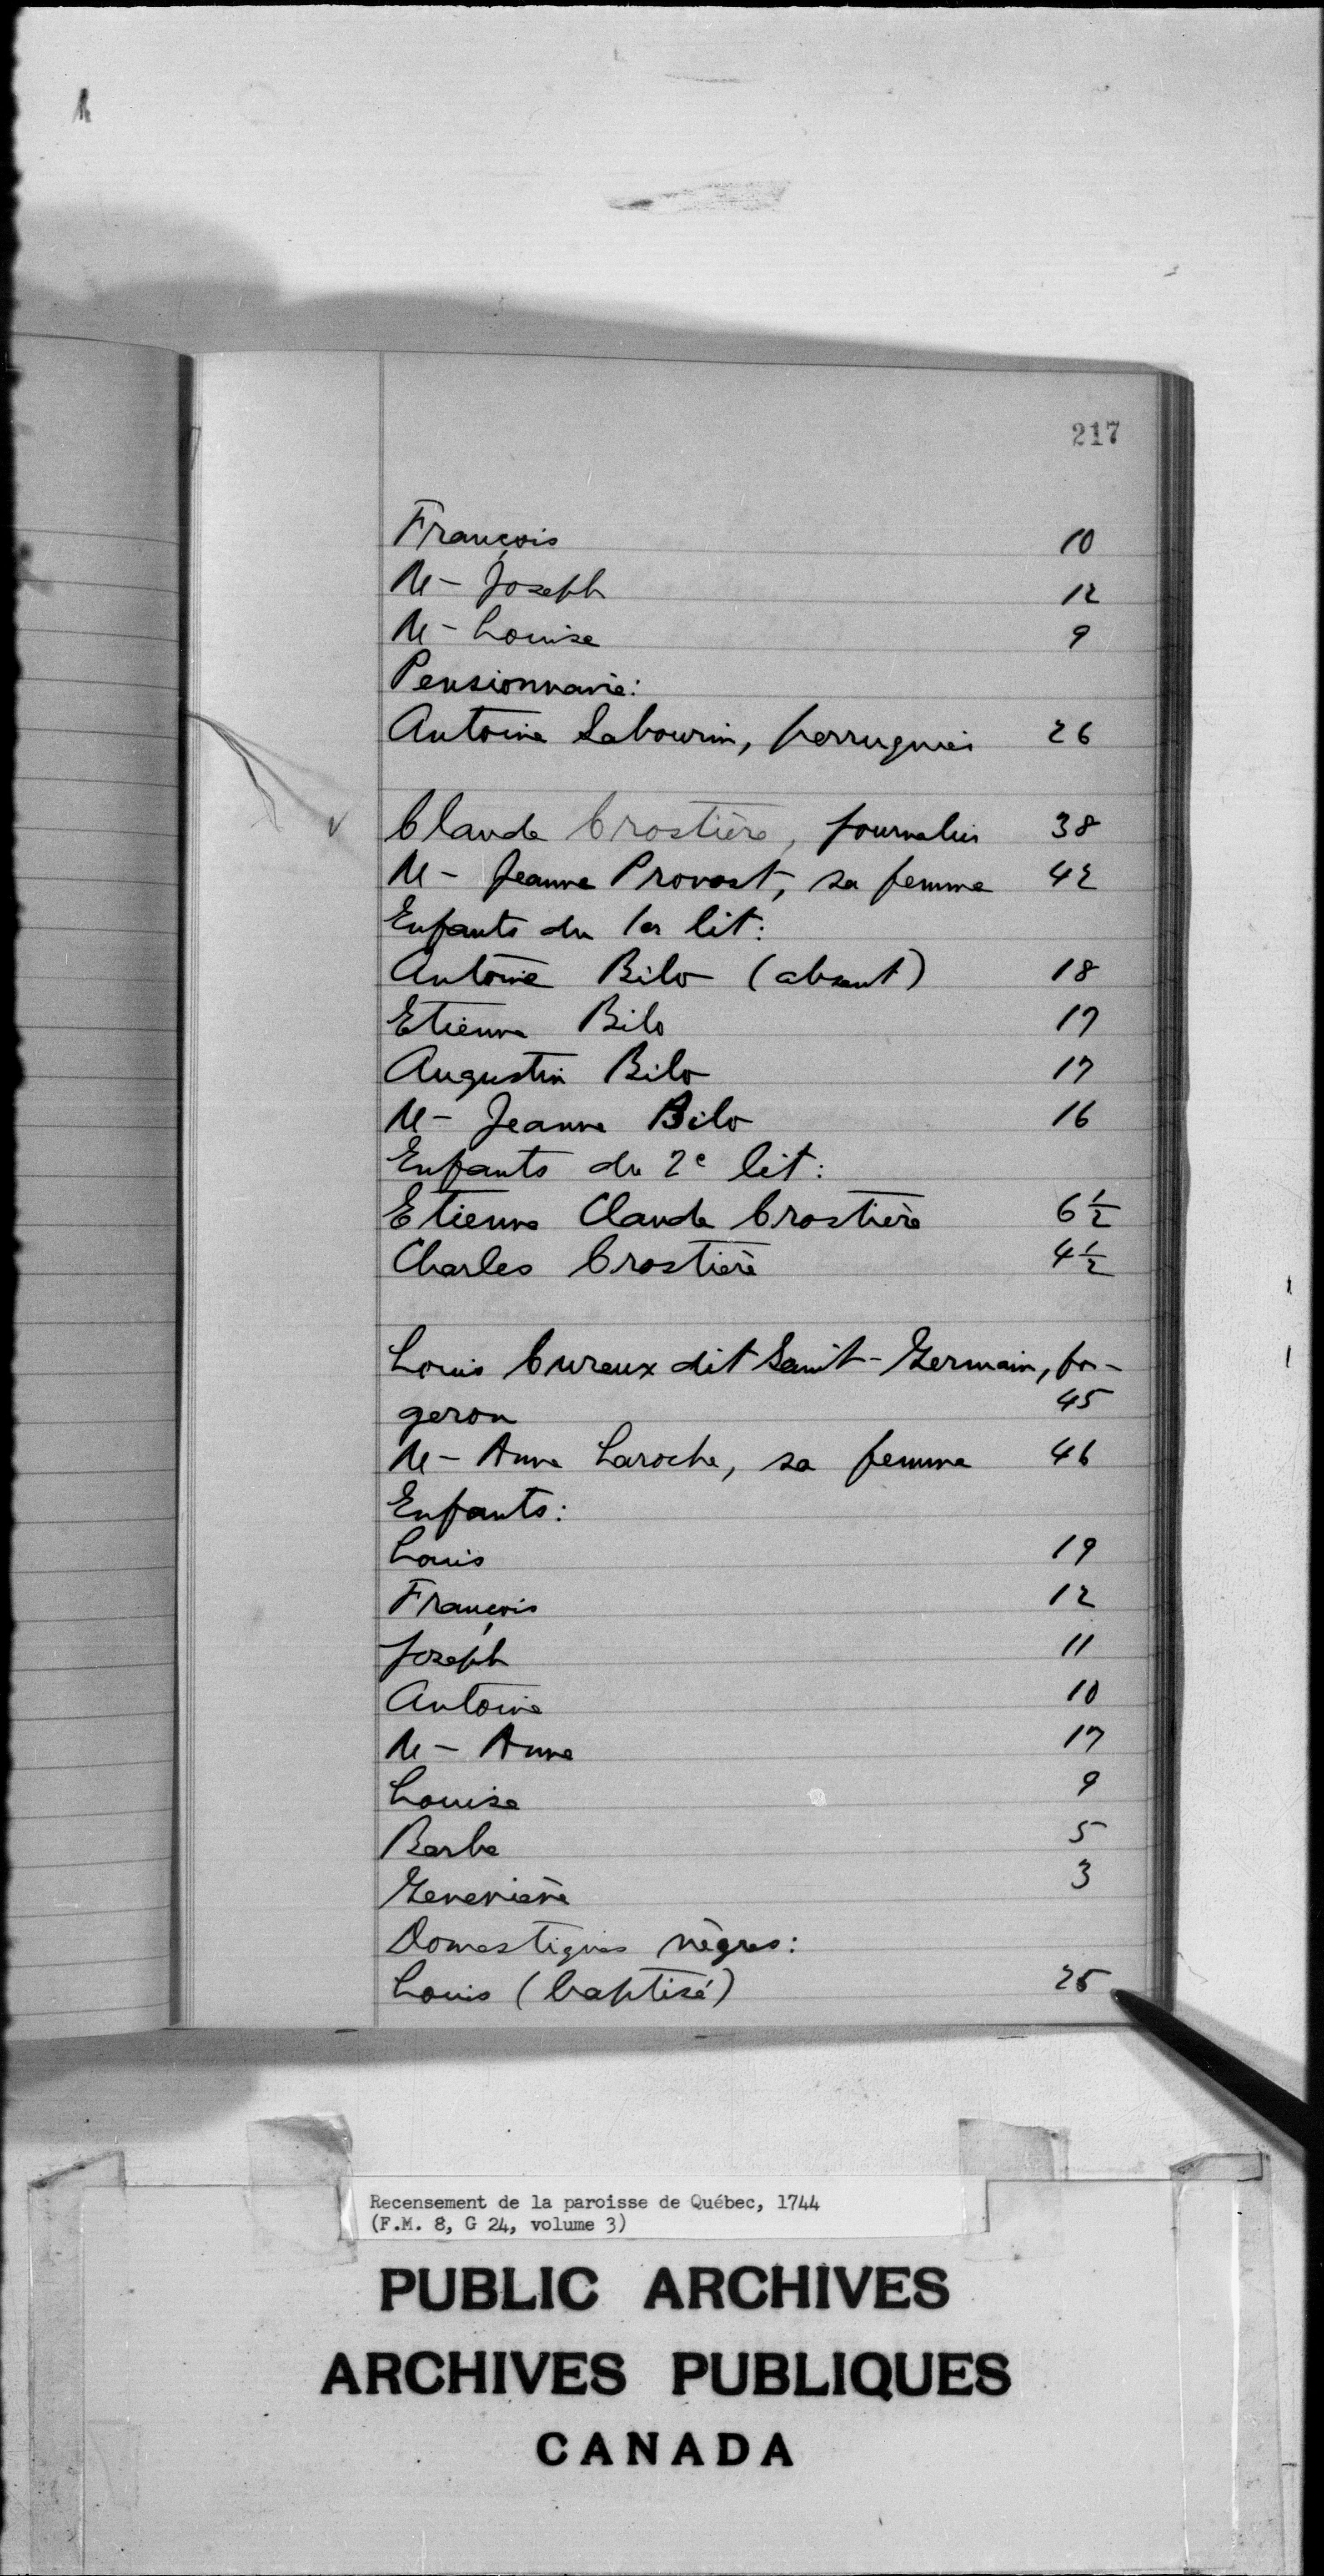 217
François 10
M- Joseph 12
M- Louise 9
Pensionnaire:
Antoine Sabourin, perruquier 26
Claude Crostière, journalier 38
M- Jeanne Provost, sa femme 42
Enfants du 1er lit:
Antoine Bilo (absent) 18
Etienne Bilo 17
Augustin Bilo 17
M- Jeanne Bilo 16
Enfants du 2e lit:
Etienne Claude Crostière 6 1/2
Charles Crostière 4 1/2
Louis Cureux dit Saint-Germain, for-
geron 45
M- Anne Laroche, sa femme 46
Enfants:
Louis 19
François 12
Joseph 11
Antoine 10
M- Anne 17
Louise 9
Barbe 5
Geneviève 3
Domestiques nègres:
Louis (baptisé) 25
Recensement de la paroisse de Québec, 1744
(F.M. 8, G 24, volume 3)
PUBLIC ARCHIVES
ARCHIVES PUBLIQUES
CANADA